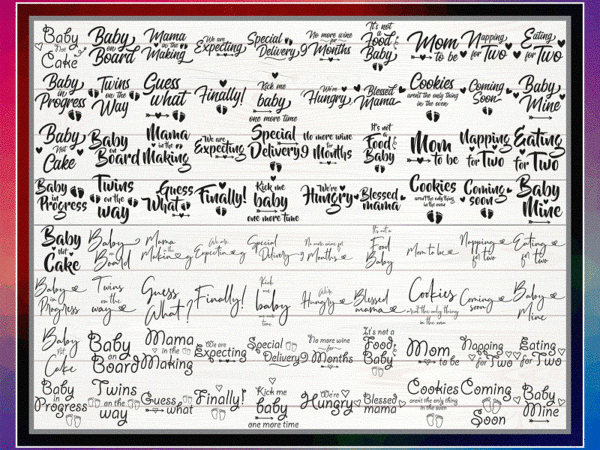 Baby
Not
Cake
Baby
on
Board
Mama
in the
Making
We are
Expecting
Special
Delivery
No more wine
for
9 Months
It's not
a
Food
Baby
Mom
to be
Napping
for Two
Eating
for Two
Baby
in
Progress
Twins
on the
Way
Guess
what
Finally!
Kick me
baby
one more time
We're
Hungry
Blessed
Mama
Cookies
aren't the only thing
in the oven
Coming
Soon
Baby
Mine
Baby
Not
Cake
Baby
on
Board
Mama
in the
Making
We are
Expecting
Special
Delivery
No more wine
for
9 Months
It's not
a
Food
Baby
Mom
to be
Napping
for Two
Eating
for Two
Baby
in
Progress
Twins
on the
way
Guess
What
Finally!
Kick me
baby
one more time
We're
Hungry
Blessed
mama
Cookies
aren't the only thing
in the oven
Coming
soon
Baby
Mine
Baby
not
Cake
Baby
on
Board
Mama
in the
Making
We are
Expecting
Special
Delivery
No more wine for
9 Months
It's not a
Food
Baby
Mom to be
Napping
for two
Eating
for two
Baby
in
Progress
Twins
on the
way
Guess
What?
Finally!
Kick
me
baby
time
We're
Hungry
Blessed
mama
Cookies
aren't the only thing
in the oven
Coming
soon
Baby
Mine
Baby
Not
Cake
Baby
on
Board
Mama
in the
Making
We are
Expecting
Special
Delivery
No more wine
for
9 Months
It's not a
Food
Baby
Mom
to be
Napping
for Two
Eating
for Two
Baby
in
Progress
Twins
on the
way
Guess
what
Finally!
Kick me
baby
one more time
We're
Hungry
Blessed
mama
Cookies
aren't the only thing
in the oven
Coming
Soon
Baby
Mine